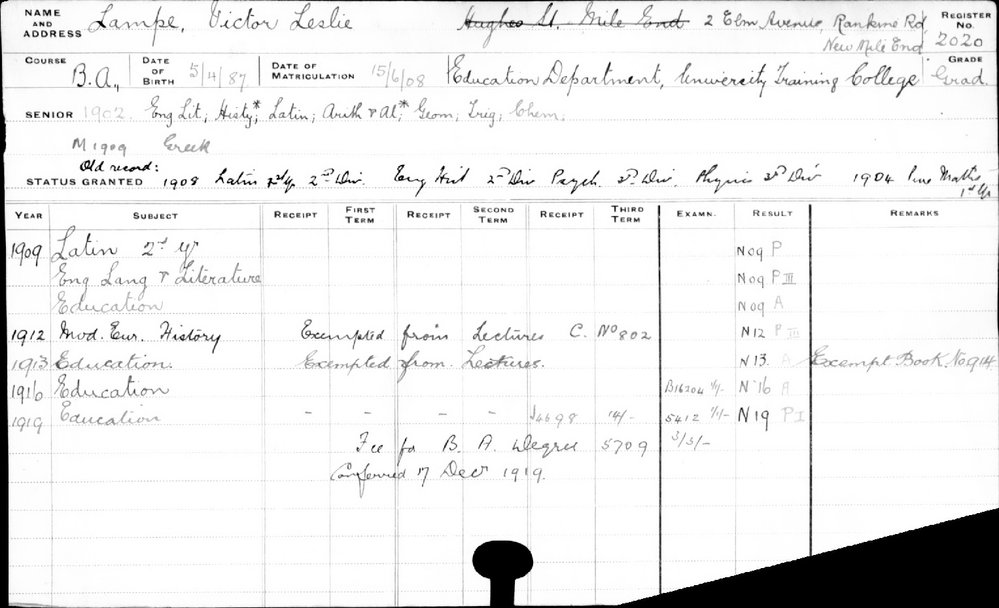 NAME AND ADDRESS Lampe, Victor Leslie Hughes St. Mile End 2 Elm Avenue, Rankine Rd, New Mile End REGISTER No. 2020
COURSE B.A., DATE OF BIRTH 5/4/87 DATE OF MATRICULATION 15/6/08 Education Department, University Training College GRADE Grad.
SENIOR 1902. Eng Lit; Histy*; Latin; Arith & Al*; Geom; Trig; Chem;
M 1909 Greek
Old record:
STATUS GRANTED 1908 Latin 2nd Div. Eng Hist 2nd Div Psych. 3rd Div. Physics 3rd Div 1904 Pure Maths 1st Yr
YEAR SUBJECT RECEIPT FIRST TERM RECEIPT SECOND TERM RECEIPT THIRD TERM EXAMN. RESULT REMARKS
1909 Latin 2nd Yr N09 P
Eng Lang & Literature N09 P III
Education N09 A
1912 Mod. Eur. History Exempted from Lectures C. No 802 N12 P III
1913 Education. Exempted from Lectures. N13. A Exempt Book. No 914.
1916 Education B16204 1/1/- N'16 A
1919 Education - - - - 4698 14/- 5412 1/1/- N19 P I
Fee for B. A. Degree 5709 3/3/-
Conferred 17 Decr 1919.